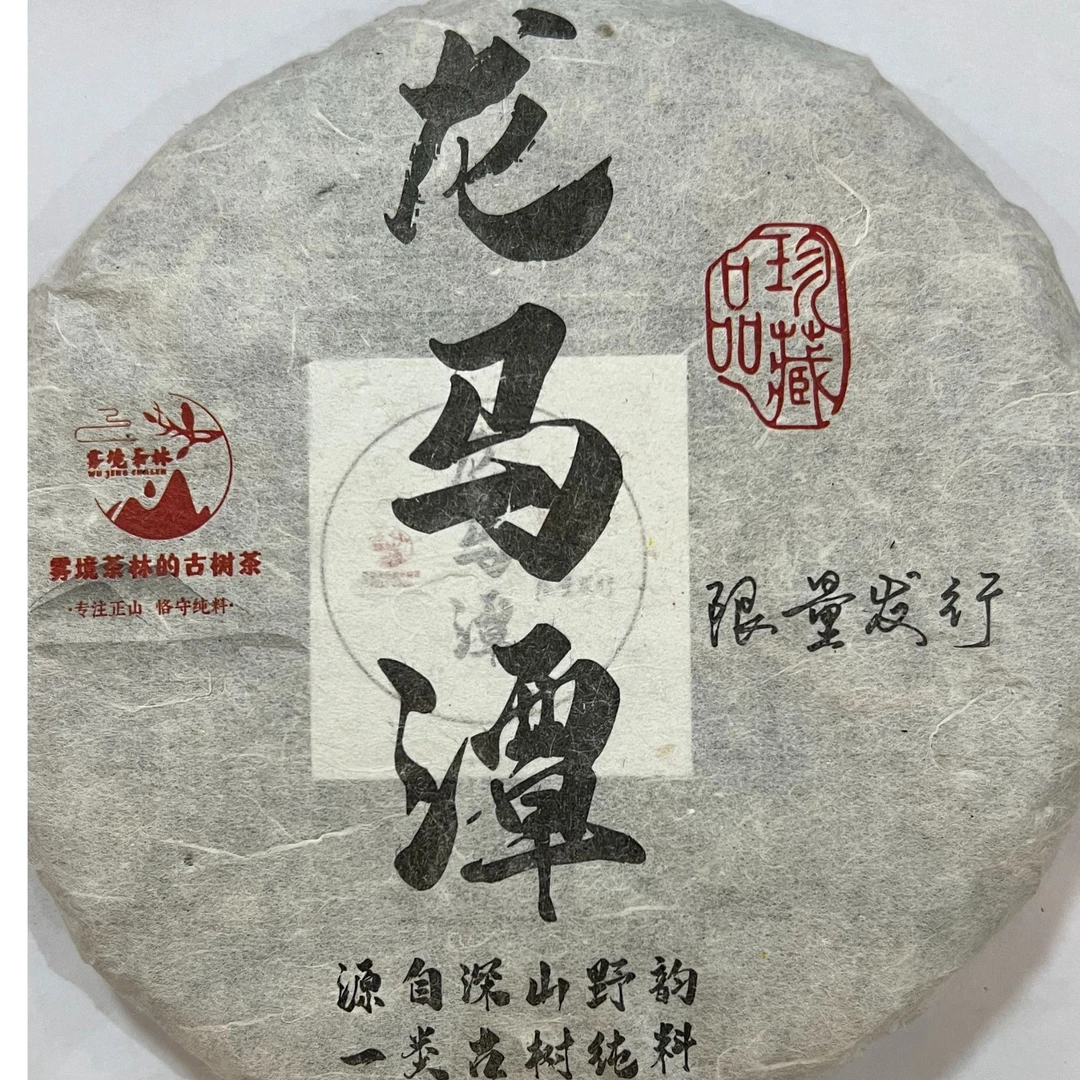 龙马潭
珍藏品
雾境茶林
WU JING CHALIN
雾境茶林的古树茶
·专注正山 恪守纯料·
限量发行
源自深山野韵
一类古树纯料